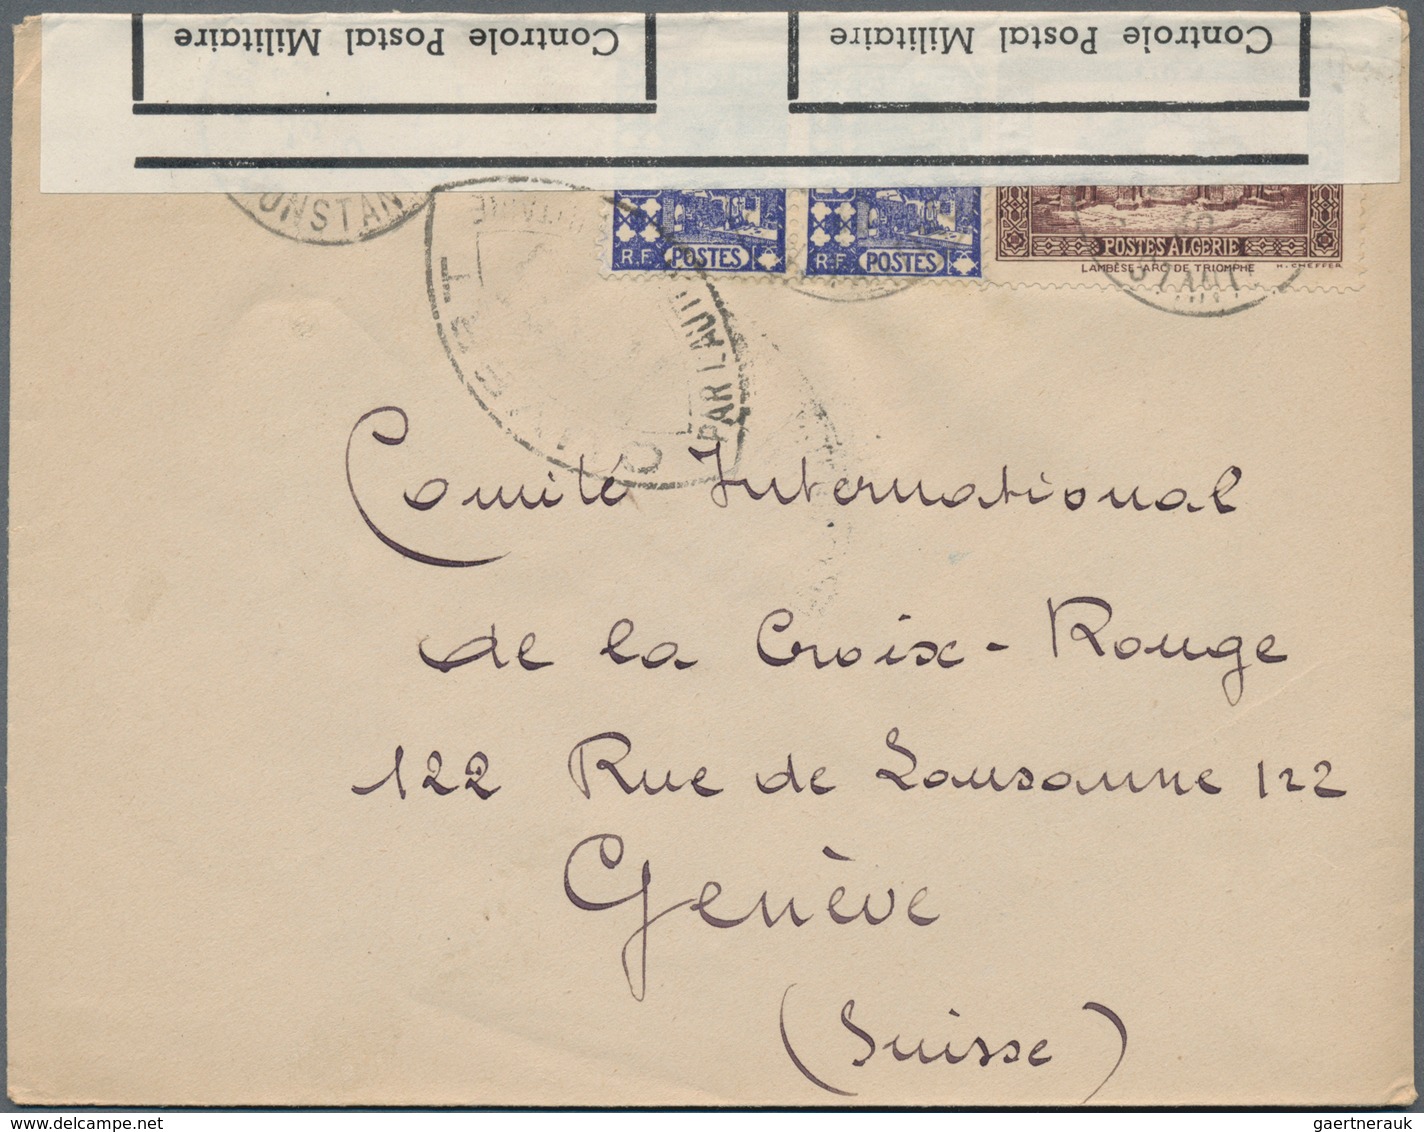 Controle Postal Militaire
Controle Postal Militaire
CONSTAN
R.F. POSTES
R.F. POSTES
POSTES ALGERIE
LAMBÈSE-ARC DE TRIOMPHE
H. CHEFFER
OUVERT
PAR L'AUTORITÉ
Comité International
de la Croix-Rouge
122 Rue de Lausanne 122
Genève
(Suisse)
gaertnerauk